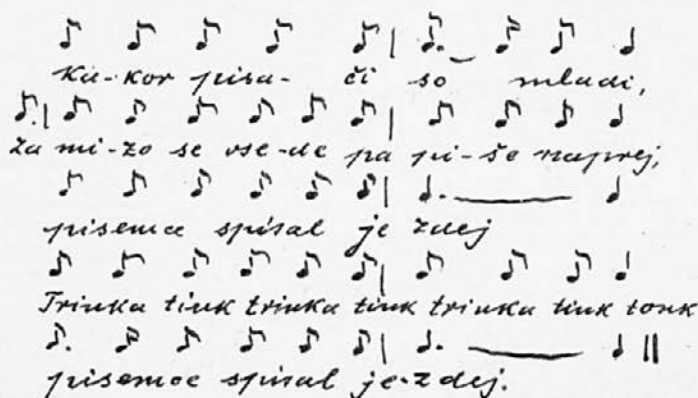 Ka-kor pisa- či so mladi,
za mi-zo se vse-de pa pi-še naprej,
pisemce spisal je zdej
Trinka tink trinka tink trinka tink tonk
pisemce spisal je-zdej.